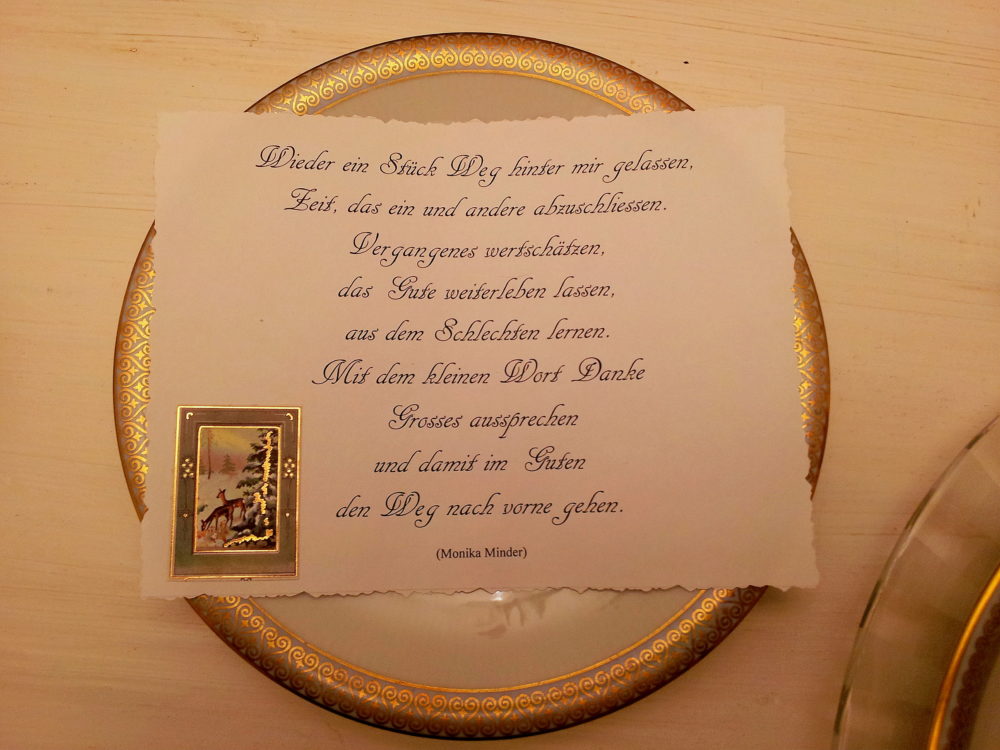 Wieder ein Stück Weg hinter mir gelassen,
Zeit, das ein und andere abzuschliessen.
Vergangenes wertschätzen,
das Gute weiterleben lassen,
aus dem Schlechten lernen.
Mit dem kleinen Wort Danke
Grosses aussprechen
und damit im Guten
den Weg nach vorne gehen.
(Monika Minder)